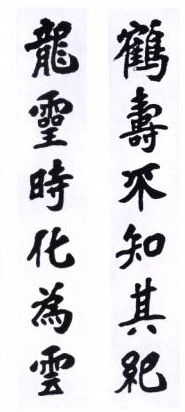 鶴壽不知其紀
龍靈時化為雲